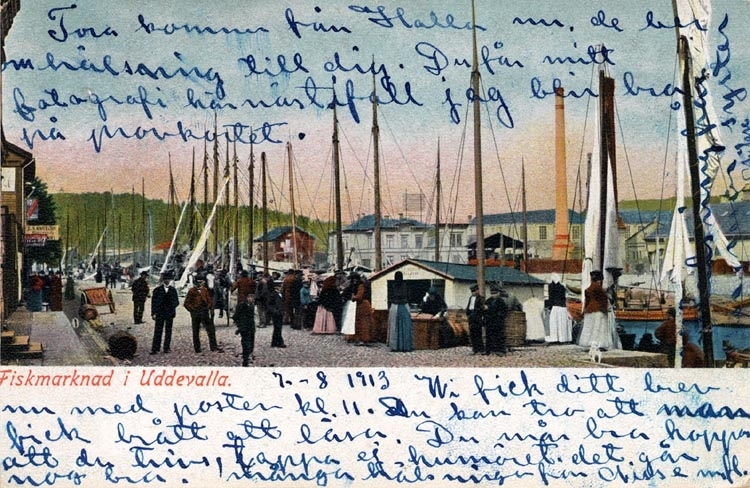 Tora kommer från Halla nu, de ber
om hälsning till dig. Du får mitt
fotografi härnäst ifall jag blir bra
på provkortet.
Fiskmarknad i Uddevalla.
7.-8 1913 Vi fick ditt brev
nu med posten kl. 11. Du kan tro att man
fick brått att läsa. Du mår bra hoppas
att du trivs, tappa ej humöret det går
nog bra. många hälsningar från